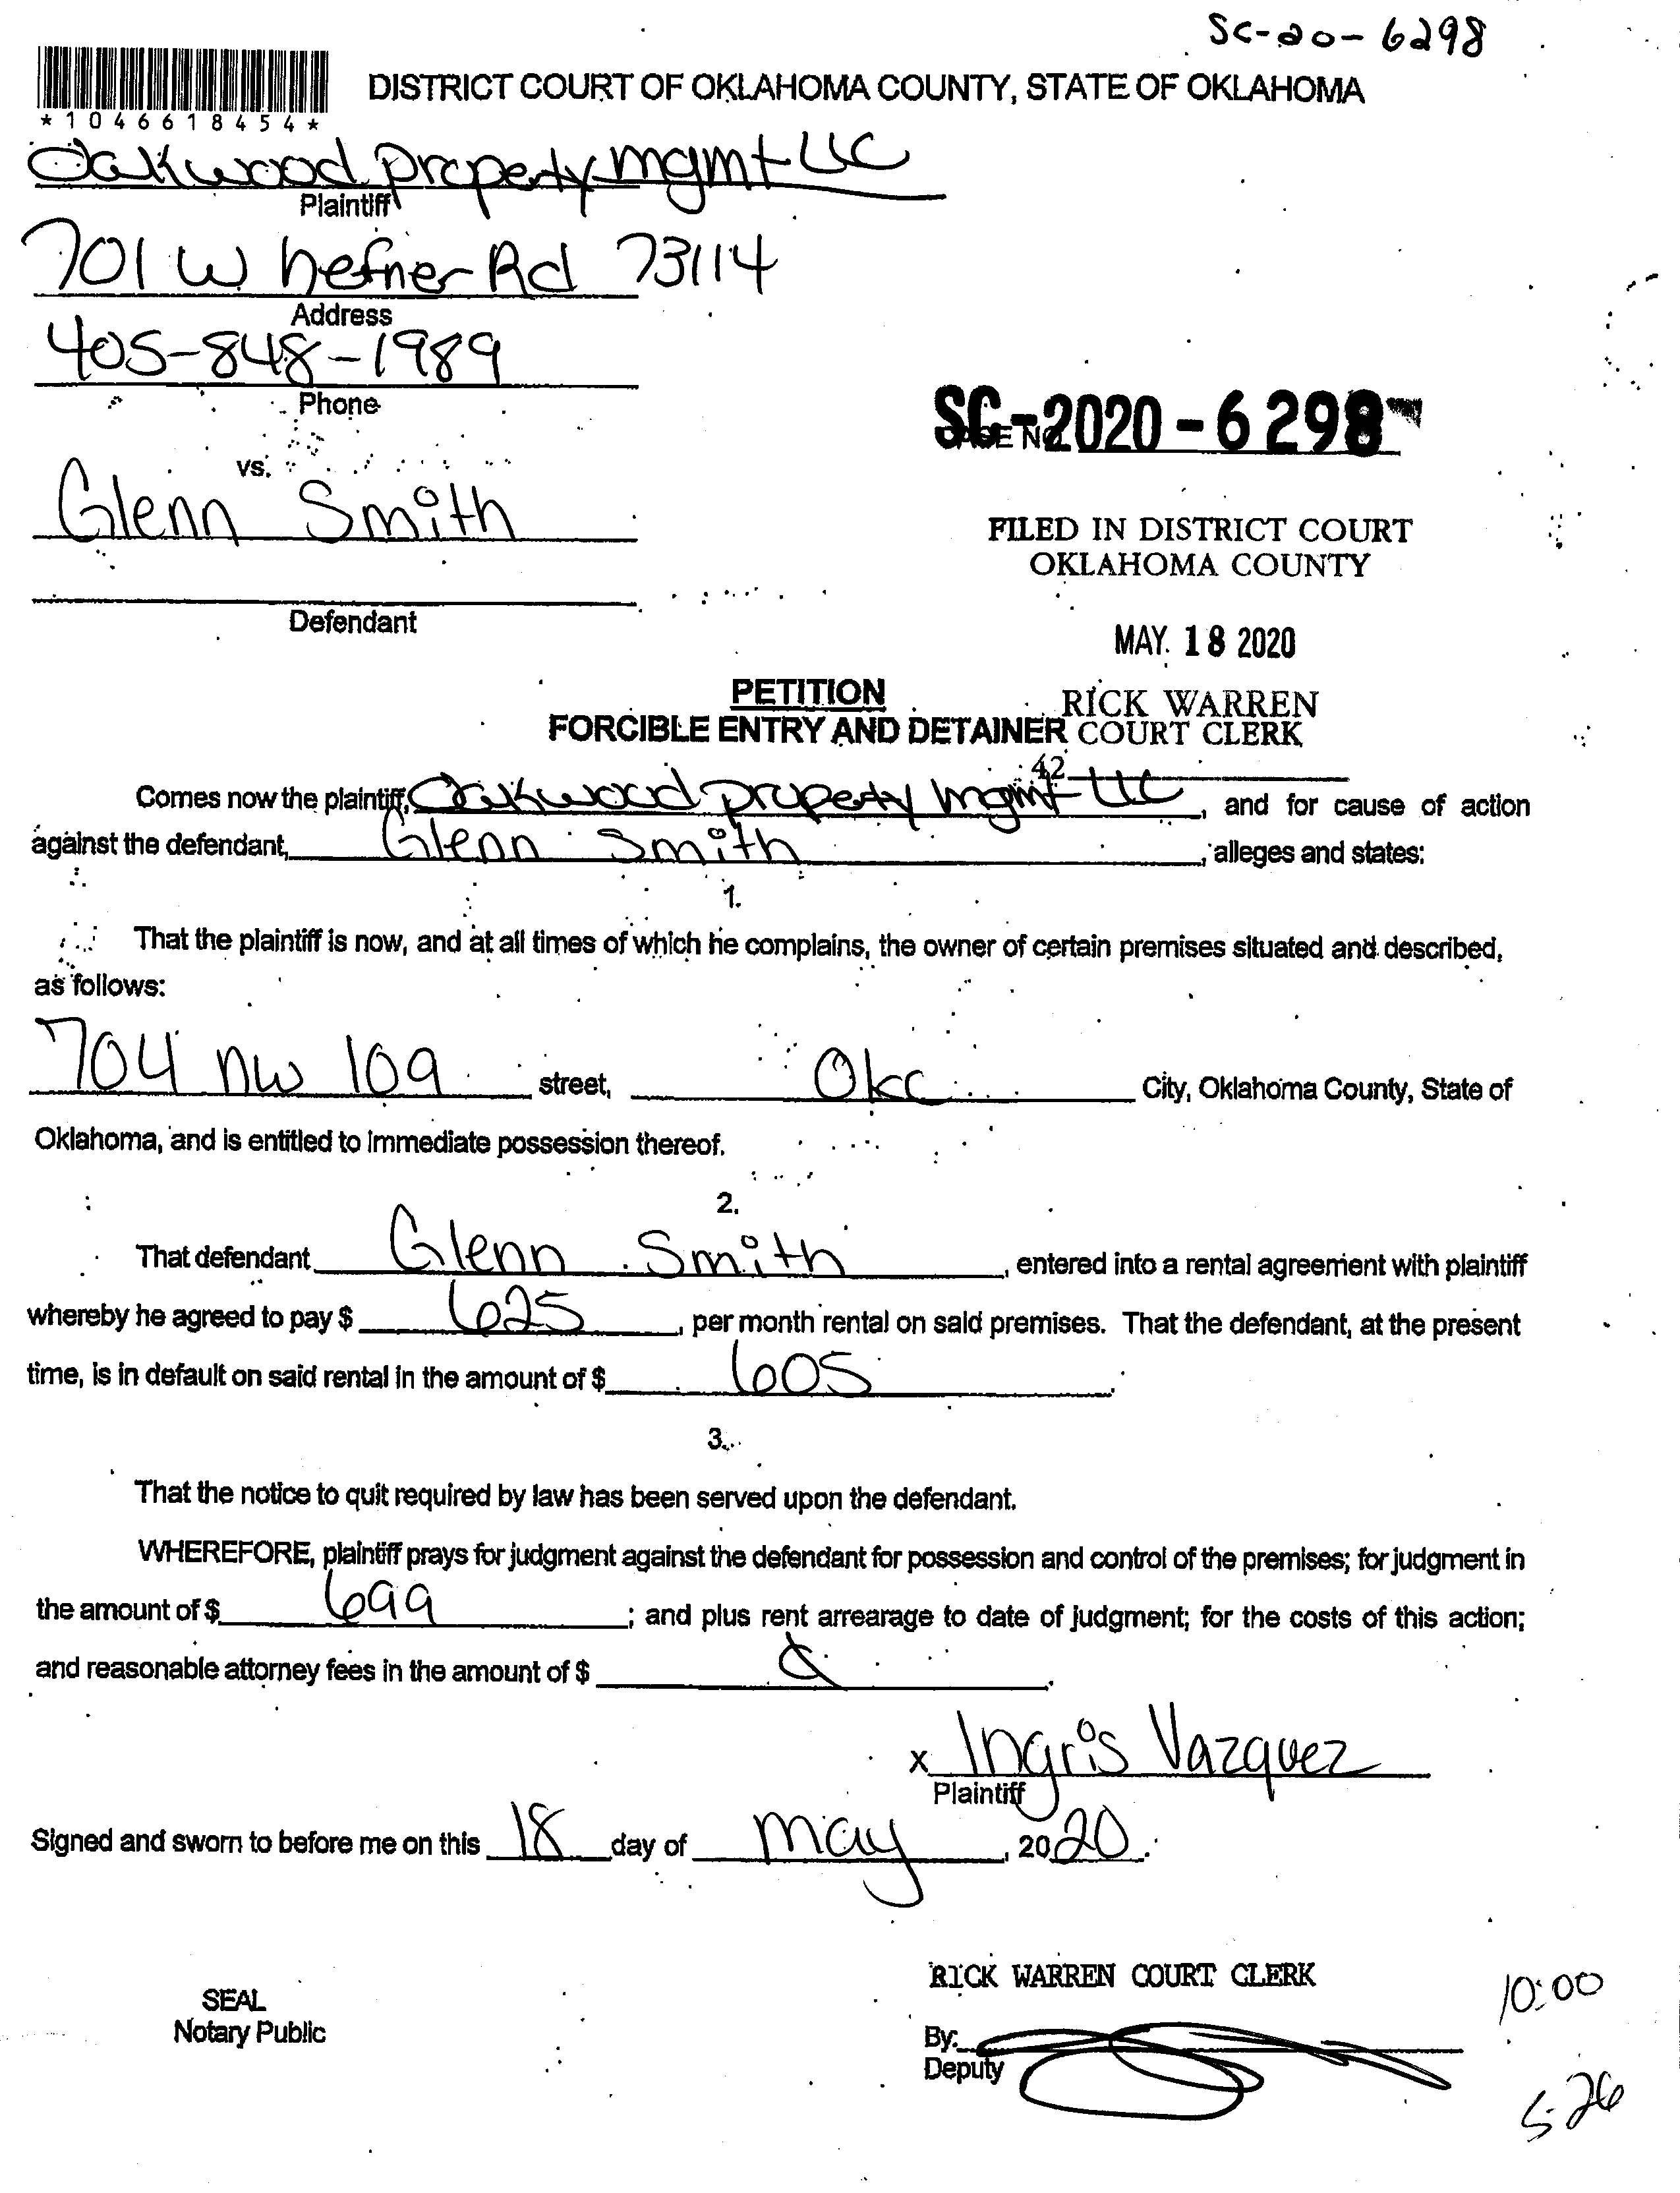 SC-20-6298
DISTRICT COURT OF OKLAHOMA COUNTY, STATE OF OKLAHOMA
*1046618454*
Oakwood property mgmt LLC
Plaintiff
701 W hefner Rd 73114
Address
405-848-1989
Phone
SC-2020-6298
CASE NO.
vs.
Glenn Smith
FILED IN DISTRICT COURT
OKLAHOMA COUNTY
Defendant
MAY 18 2020
PETITION
RICK WARREN
FORCIBLE ENTRY AND DETAINER COURT CLERK
42
Comes now the plaintiff, Oakwood property mgmt LLC, and for cause of action
against the defendant, Glenn Smith, alleges and states:
1.
That the plaintiff is now, and at all times of which he complains, the owner of certain premises situated and described,
as follows:
704 NW 109 street, OKC City, Oklahoma County, State of
Oklahoma, and is entitled to immediate possession thereof.
2.
That defendant Glenn Smith, entered into a rental agreement with plaintiff
whereby he agreed to pay $ 625, per month rental on said premises. That the defendant, at the present
time, is in default on said rental in the amount of $ 605.
3.
That the notice to quit required by law has been served upon the defendant.
WHEREFORE, plaintiff prays for judgment against the defendant for possession and control of the premises; for judgment in
the amount of $ 699; and plus rent arrearage to date of judgment; for the costs of this action;
and reasonable attorney fees in the amount of $
x Ingris Vazquez
Plaintiff
Signed and sworn to before me on this 18 day of may, 2020.
RICK WARREN COURT CLERK
10:00
SEAL
Notary Public
By:
Deputy
5-26